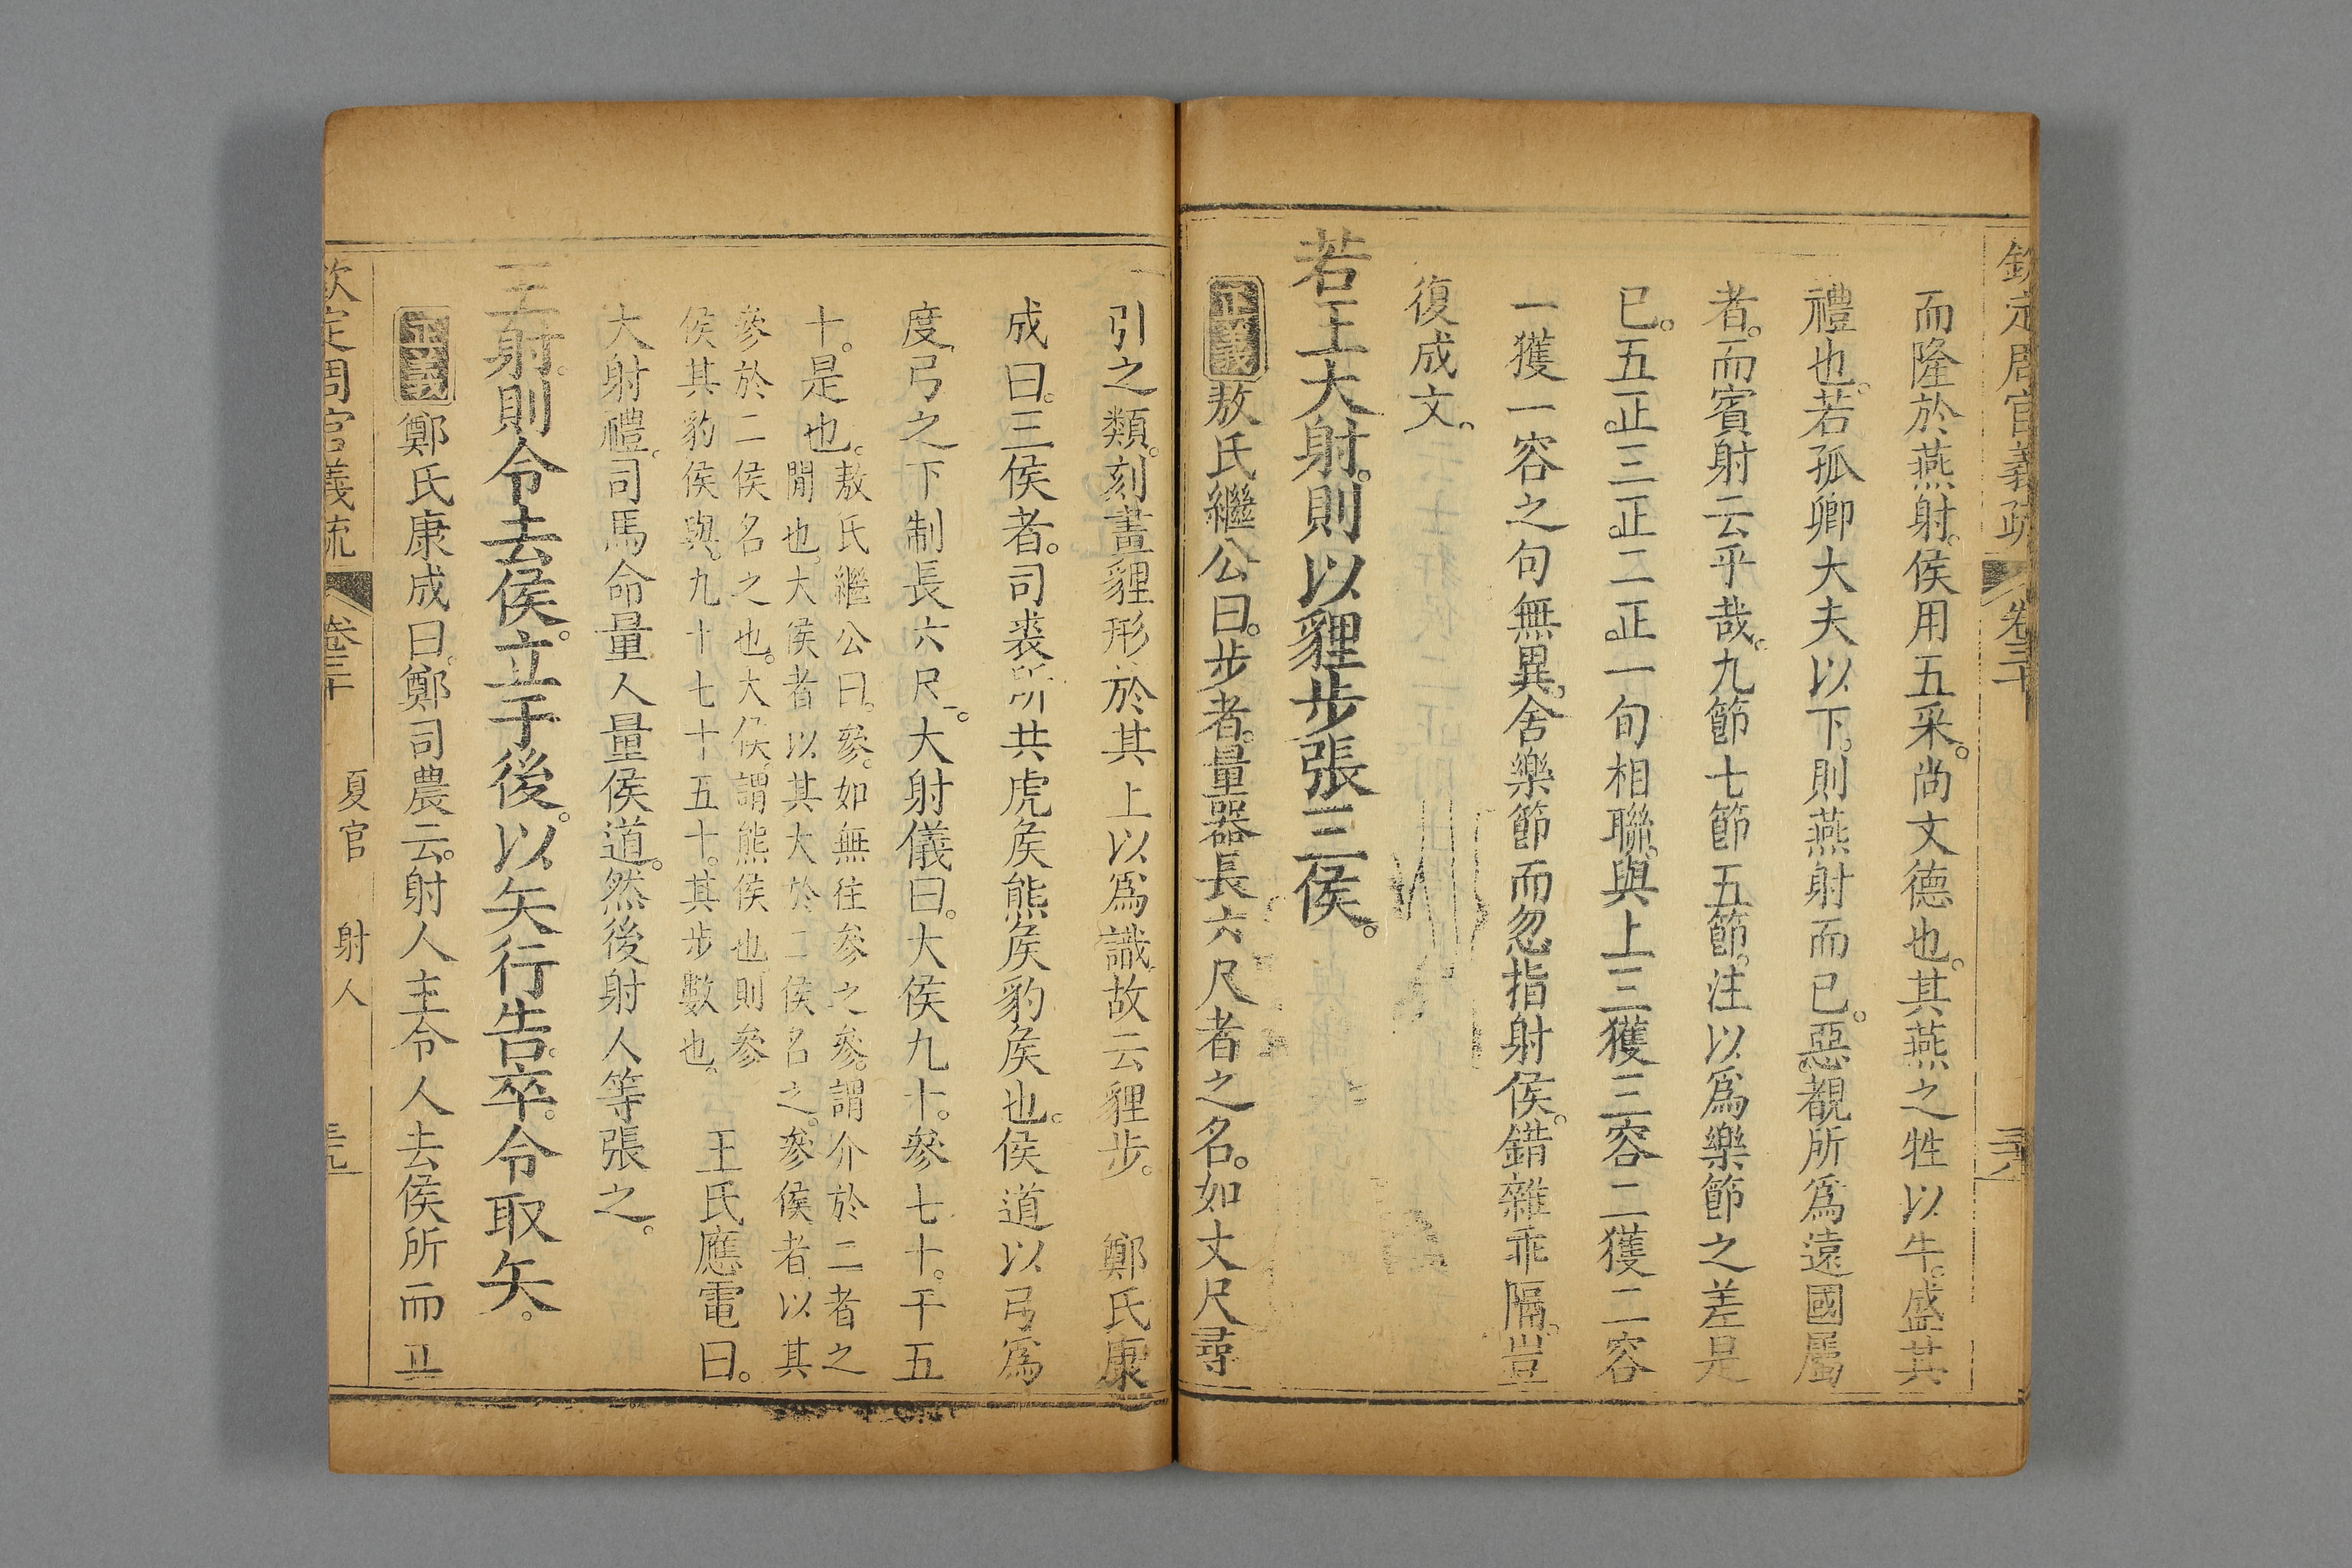 欽定周官義疏 卷三十 三八
而隆於燕射。侯用五采。尚文德也。其燕之牲以牛。盛其
禮也。若孤卿大夫以下。則燕射而已。惡覩所爲遠國屬
者。而賓射云乎哉。九節七節五節。注以爲樂節之差是
已。五正。三正。二正。一旬相聯。與上三獲三容二獲二容
一獲一容之句無異。舍樂節而忽指射侯。錯雜乖隔。豈
復成文。
若王大射。則以貍步張三侯。
正義敖氏繼公曰。步者。量器長六尺者之名。如丈尺尋
引之類。刻畫貍形於其上以爲識故云貍步。 鄭氏康
成曰。三侯者。司裘所共虎侯熊侯豹侯也。侯道以弓爲
度。弓之下制長六尺。大射儀曰。大侯九十。參七十。干五
十。是也。
敖氏繼公曰。參。如無往參之參。謂介於二者之
閒也。大侯者以其大於二侯名之。參侯者以其
參於二侯名之也。大侯謂熊侯也則參
侯其豹侯與。九十七十五十。其步數也。
王氏應電曰。
大射禮。司馬命量人量侯道。然後射人等張之。
王射。則令去侯。立于後。以矢行告。卒。令取矢。
正義鄭氏康成曰。鄭司農云。射人主令人去侯所而立
欽定周官義疏 卷三十 夏官 射人 三九